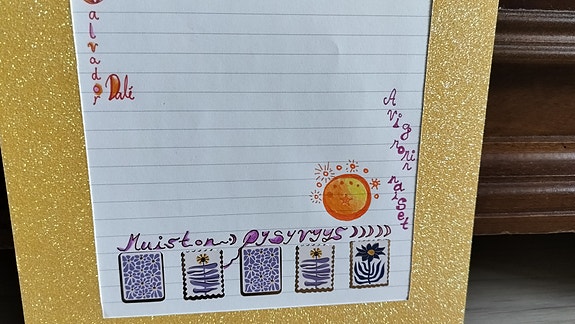 alvador Dalí
Avignonin naiset
Muiston PYSYVYYS